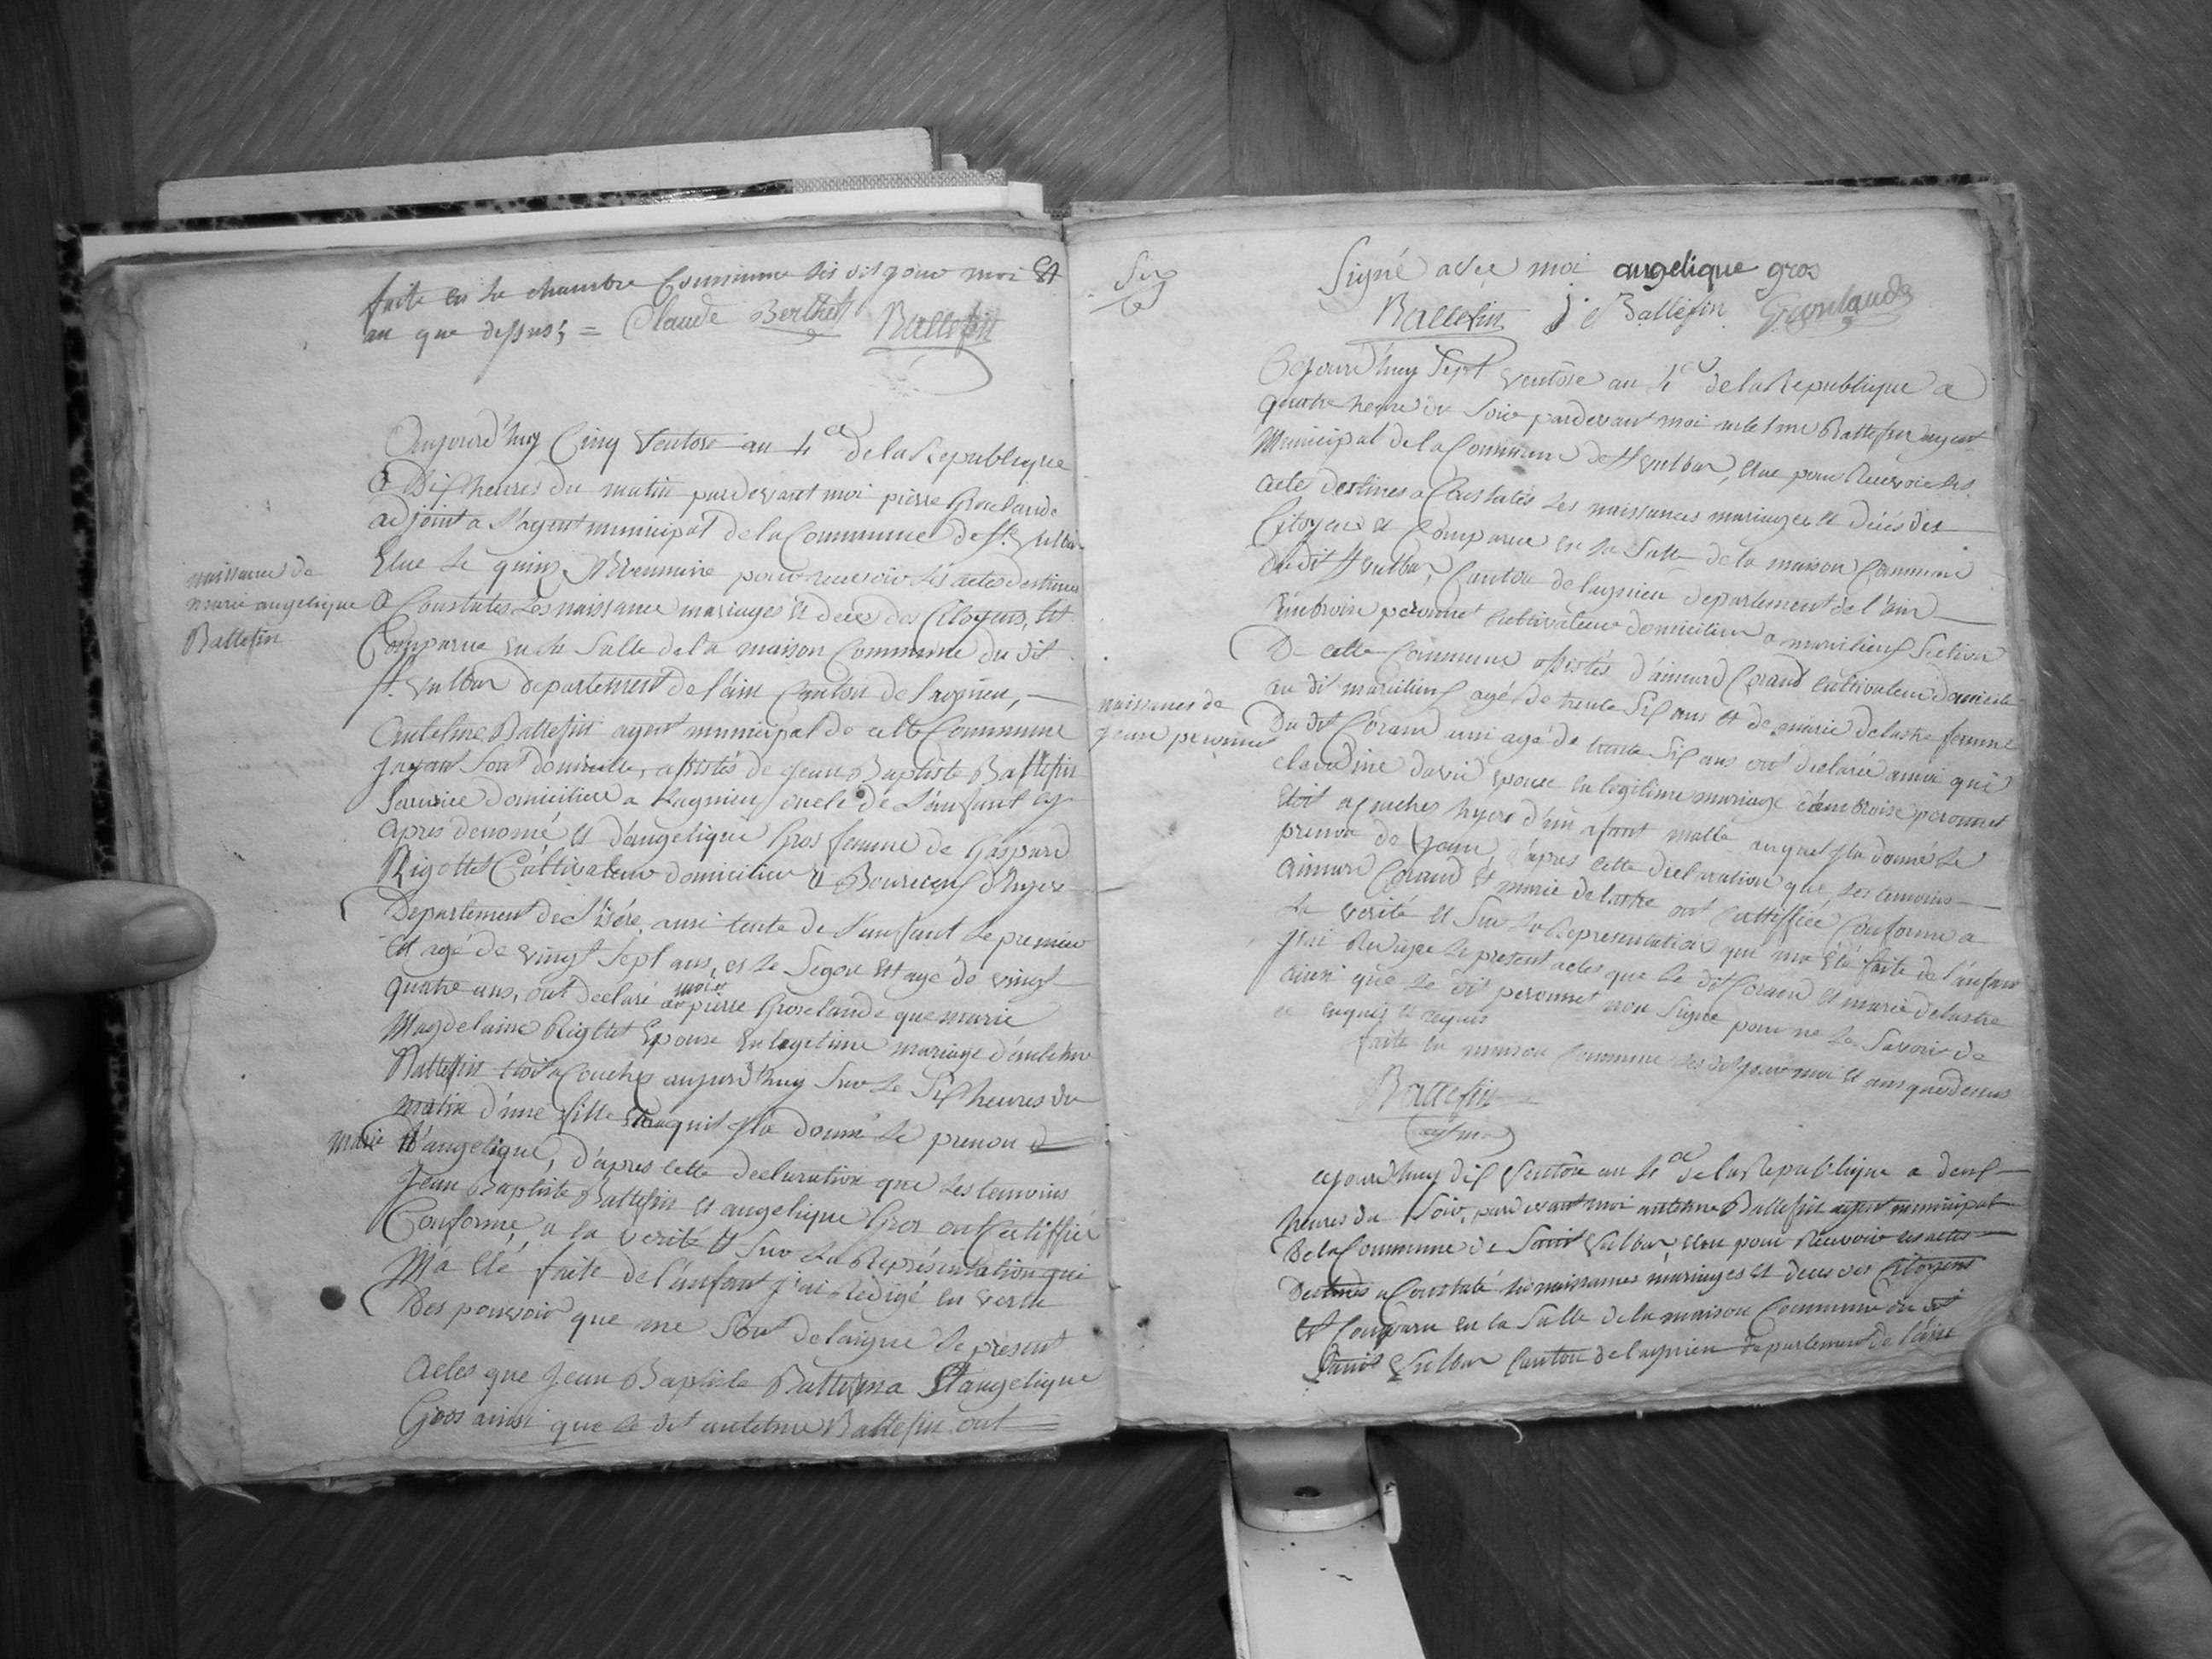 faite en la chambre Commune les dit jour moi Et
an que dessus, = Claude Berthet Ballefin
Aujourd'huy Cinq Ventose an 4e de la Republique
a Dix heures du matin pardevant moi pierre Groslande
adjoint a l'agent municipal de la Commune de St Vulbas
Elue le quinz Nivemuire pour recevoir les actes destines
a Constates les naissance mariages et deces des Citoyens, Est
Comparue en la Salle de la maison Commune du dit
St Vulbas departement de l'ain Canton de lagnieu,
naissances de
marie angelique
Ballefin
Antelme Ballefin agent municipal de cette Commune
y ayant Sont domicille, assistés de Jean Baptiste Ballefin
domicilieu a Lagnieu oncle de l'anfant cy
apres denomé et d'angelique Gros femme de Gaspard
Rigottet Cultivateur domicilieu a
Departement de l'isére, aussi tente de l'anfant le premier
Et agé de vingt Sept ans, es le Segon Est agé de vingt
quatre ans, ont declaré a moi pierre Groselande que marie
Magdelaine Rigottet Epouse en legitime mariage d'antelme
Ballefin Etoit acouches aujourd'huy Sur le Six heures du
matin d'une fille auquil jla donné le prenon d
marie d'angelique, d'apres cette declaration que les temoins
Jean Baptiste Ballefin et angelique Gros ont Certiffié
Conforme, a la verité et Sur la Représentation qui
M'a Eté faite de l'anfant j'ai Redigé en vertu
Des pouvoir que me Sont delaigue le present
Actes que Jean Baptiste Ballefin a Et angelique
Gros ainsi que le dit antelme Ballefin ont
Signé avec moi angelique gros
Ballefin J. Ballefin Groslande
Cejourd'huy Sept ventôse an 4e de la Republique a
quatre heure du Soir pardevant moi antelme Ballefin agent
Municipal de la Commune de St Vulbas, Elue pour Recevoir les
actes destines a Constatés les naissances mariages et décés des
Citoyens et Comparue en la Salle de la maison Commune
du dit St Vulbas, Canton de lagnieu departement de l'ain
Ambroise peronnet Cultivateur domicilieu a marcilieux Section
De cette Commune assistés d'aimard Corand Cultivateur domicilie
au dit marcilieux agé de trente Six ans et de marie delastre femme
naissances de
Jean peronnet
Du dit Corand aussi agé de trente Six ans ont declarée a moi que
claudine david epouse en legitime mariage d'ambroise peronnet
Etoit acouches hyere d'un afant malle auquel jla donné le
prenon de Jean, d'apres cette declaration que les temoins
aimard Corand et marie delastre ont Certiffiée Conforme a
la verité et Sur la Representation qui ma été faite de l'anfant
j'ai Redigee le present actes que le dit Corand et marie delastre
ainsi que le dit peronnet non Signe pour ne le Savoir de
ce enquis et requis
faite en maison Commune les dit jour moi et ans que dessus
Ballefin
cejourd'huy dix Ventôse an 4e de la Republique a deux
heures du Soir, pardevant moi antelme Ballefin agent municipal
De la Commune de Saint Vulbas, elue pour Recevoir les actes
Destinés a Constaté les naissances mariages et deces des Citoyens
Est Comparu en la Salle de la maison Commune du dit
Saint Vulbas Canton de lagnieu departement de l'ain